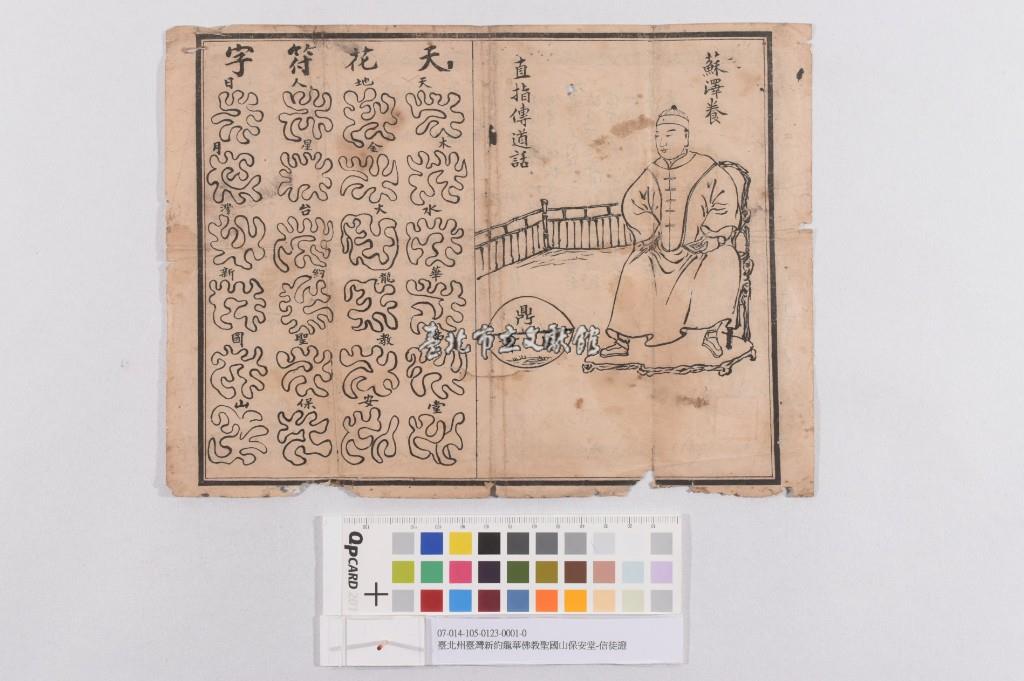 蘇澤養
直指傳道話
鼎
天花符字
天地人日
木金星月
水大台灣
華龍約新
教聖國
堂安保山
臺北市立文獻館
QPCARD 201
07-014-105-0123-0001-0
臺北州臺灣新約龍華佛教聖國山保安堂-信徒證